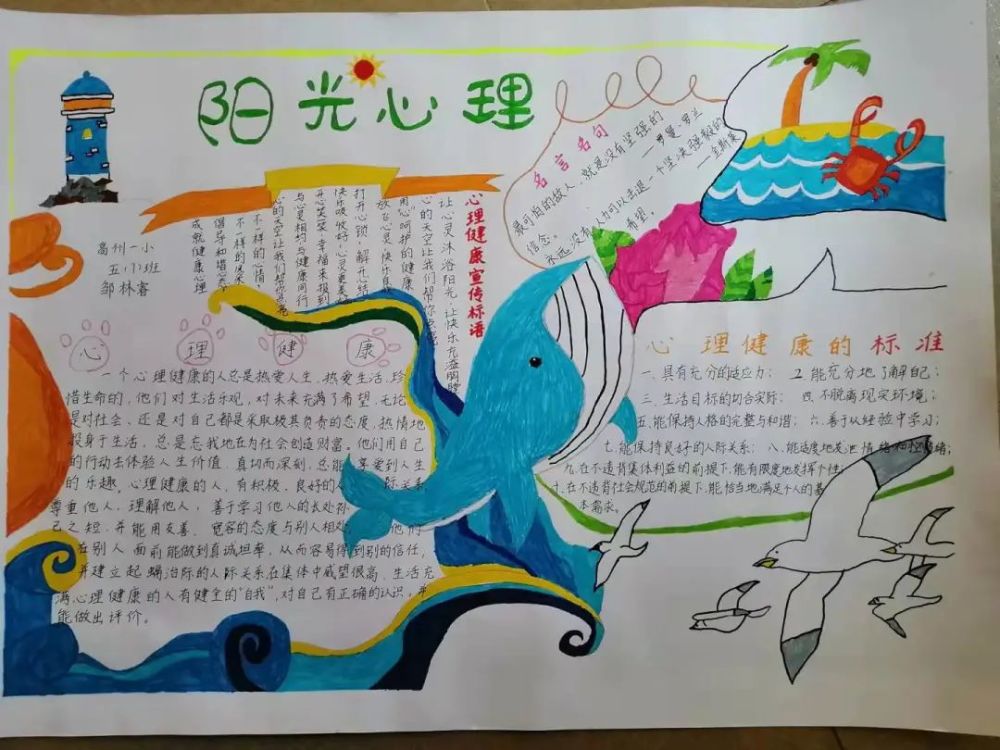 阳光心理
高州一小
五(1)班
邹林睿
心理健康宣传标语
让心灵沐浴阳光,让快乐充溢胸膛
心的天空让我们帮你点亮
用心呵护的健康
放飞心灵快乐自
打开心锁,解开心结
快乐吸收好,心灵更美
开心笑笑,幸福来报到
与心灵相约与健康同行
心的天空让我们帮你点亮
不一样的心情,
不一样的
倡导和谐心
成就健康心理
名言名句
最可怕的敌人,就是没有坚强的
信念。
——罗曼·罗兰
永远没有人力可以击退一个坚决强毅的
希望。
——金斯莱
心理健康
一个心理健康的人总是热爱人生,热爱生活,珍
惜生命的,他们对生活乐观,对未来充满了希望,无论
是对社会、还是对自己都是采取极其负责的态度,热情地
投身于生活,总是忘我地在为社会创造财富。他们用自己
的行动去体验人生价值,真切而深刻,总能享受到人生
的乐趣。心理健康的人,有积极、良好的人际关系
尊重他人,理解他人,善于学习他人的长处补
己之短,并能用友善、宽容的态度与别人相处 他们
在别人面前能做到真诚坦率,从而容易得到别的信任,
并建立起 洽际的人际关系在集体中威望很高、生活充
满心理健康的人有健全的“自我”,对自己有正确的认识,并
能做出评价。
心理健康的标准
一、具有充分的适应力; 2.能充分地了解自己;
三、生活目标的切合实际; 四、不脱离现实环境;
五、能保持人格的完整与和谐; 六、善于从经验中学习;
七、能保持良好的人际关系; 八、能适度地发泄情绪和控制情绪;
九、在不违背集体利益的前提下,能有限度地发挥个性;
十、在不违背社会规范的前提下,能恰当地满足个人的基
本需求。